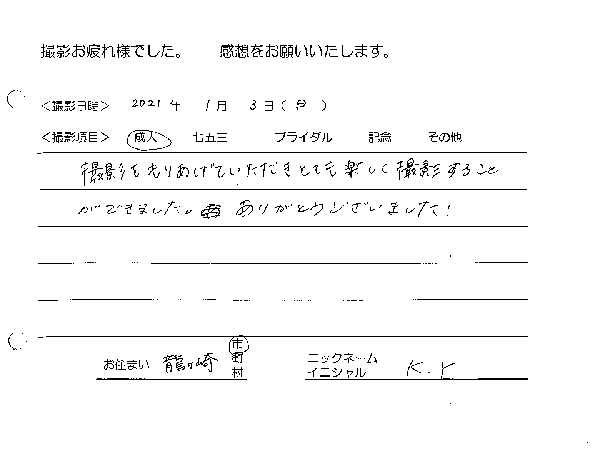 撮影お疲れ様でした。 感想をお願いいたします。
<撮影日時> 2021年 1月 3日(日)
<撮影項目> 成人 七五三 ブライダル 記念 その他
撮影をもりあげていただきとても楽しく撮影すること
ができました。ありがとうございました!
お住まい 龍ヶ崎 市 町 村
ニックネーム イニシャル K.Y